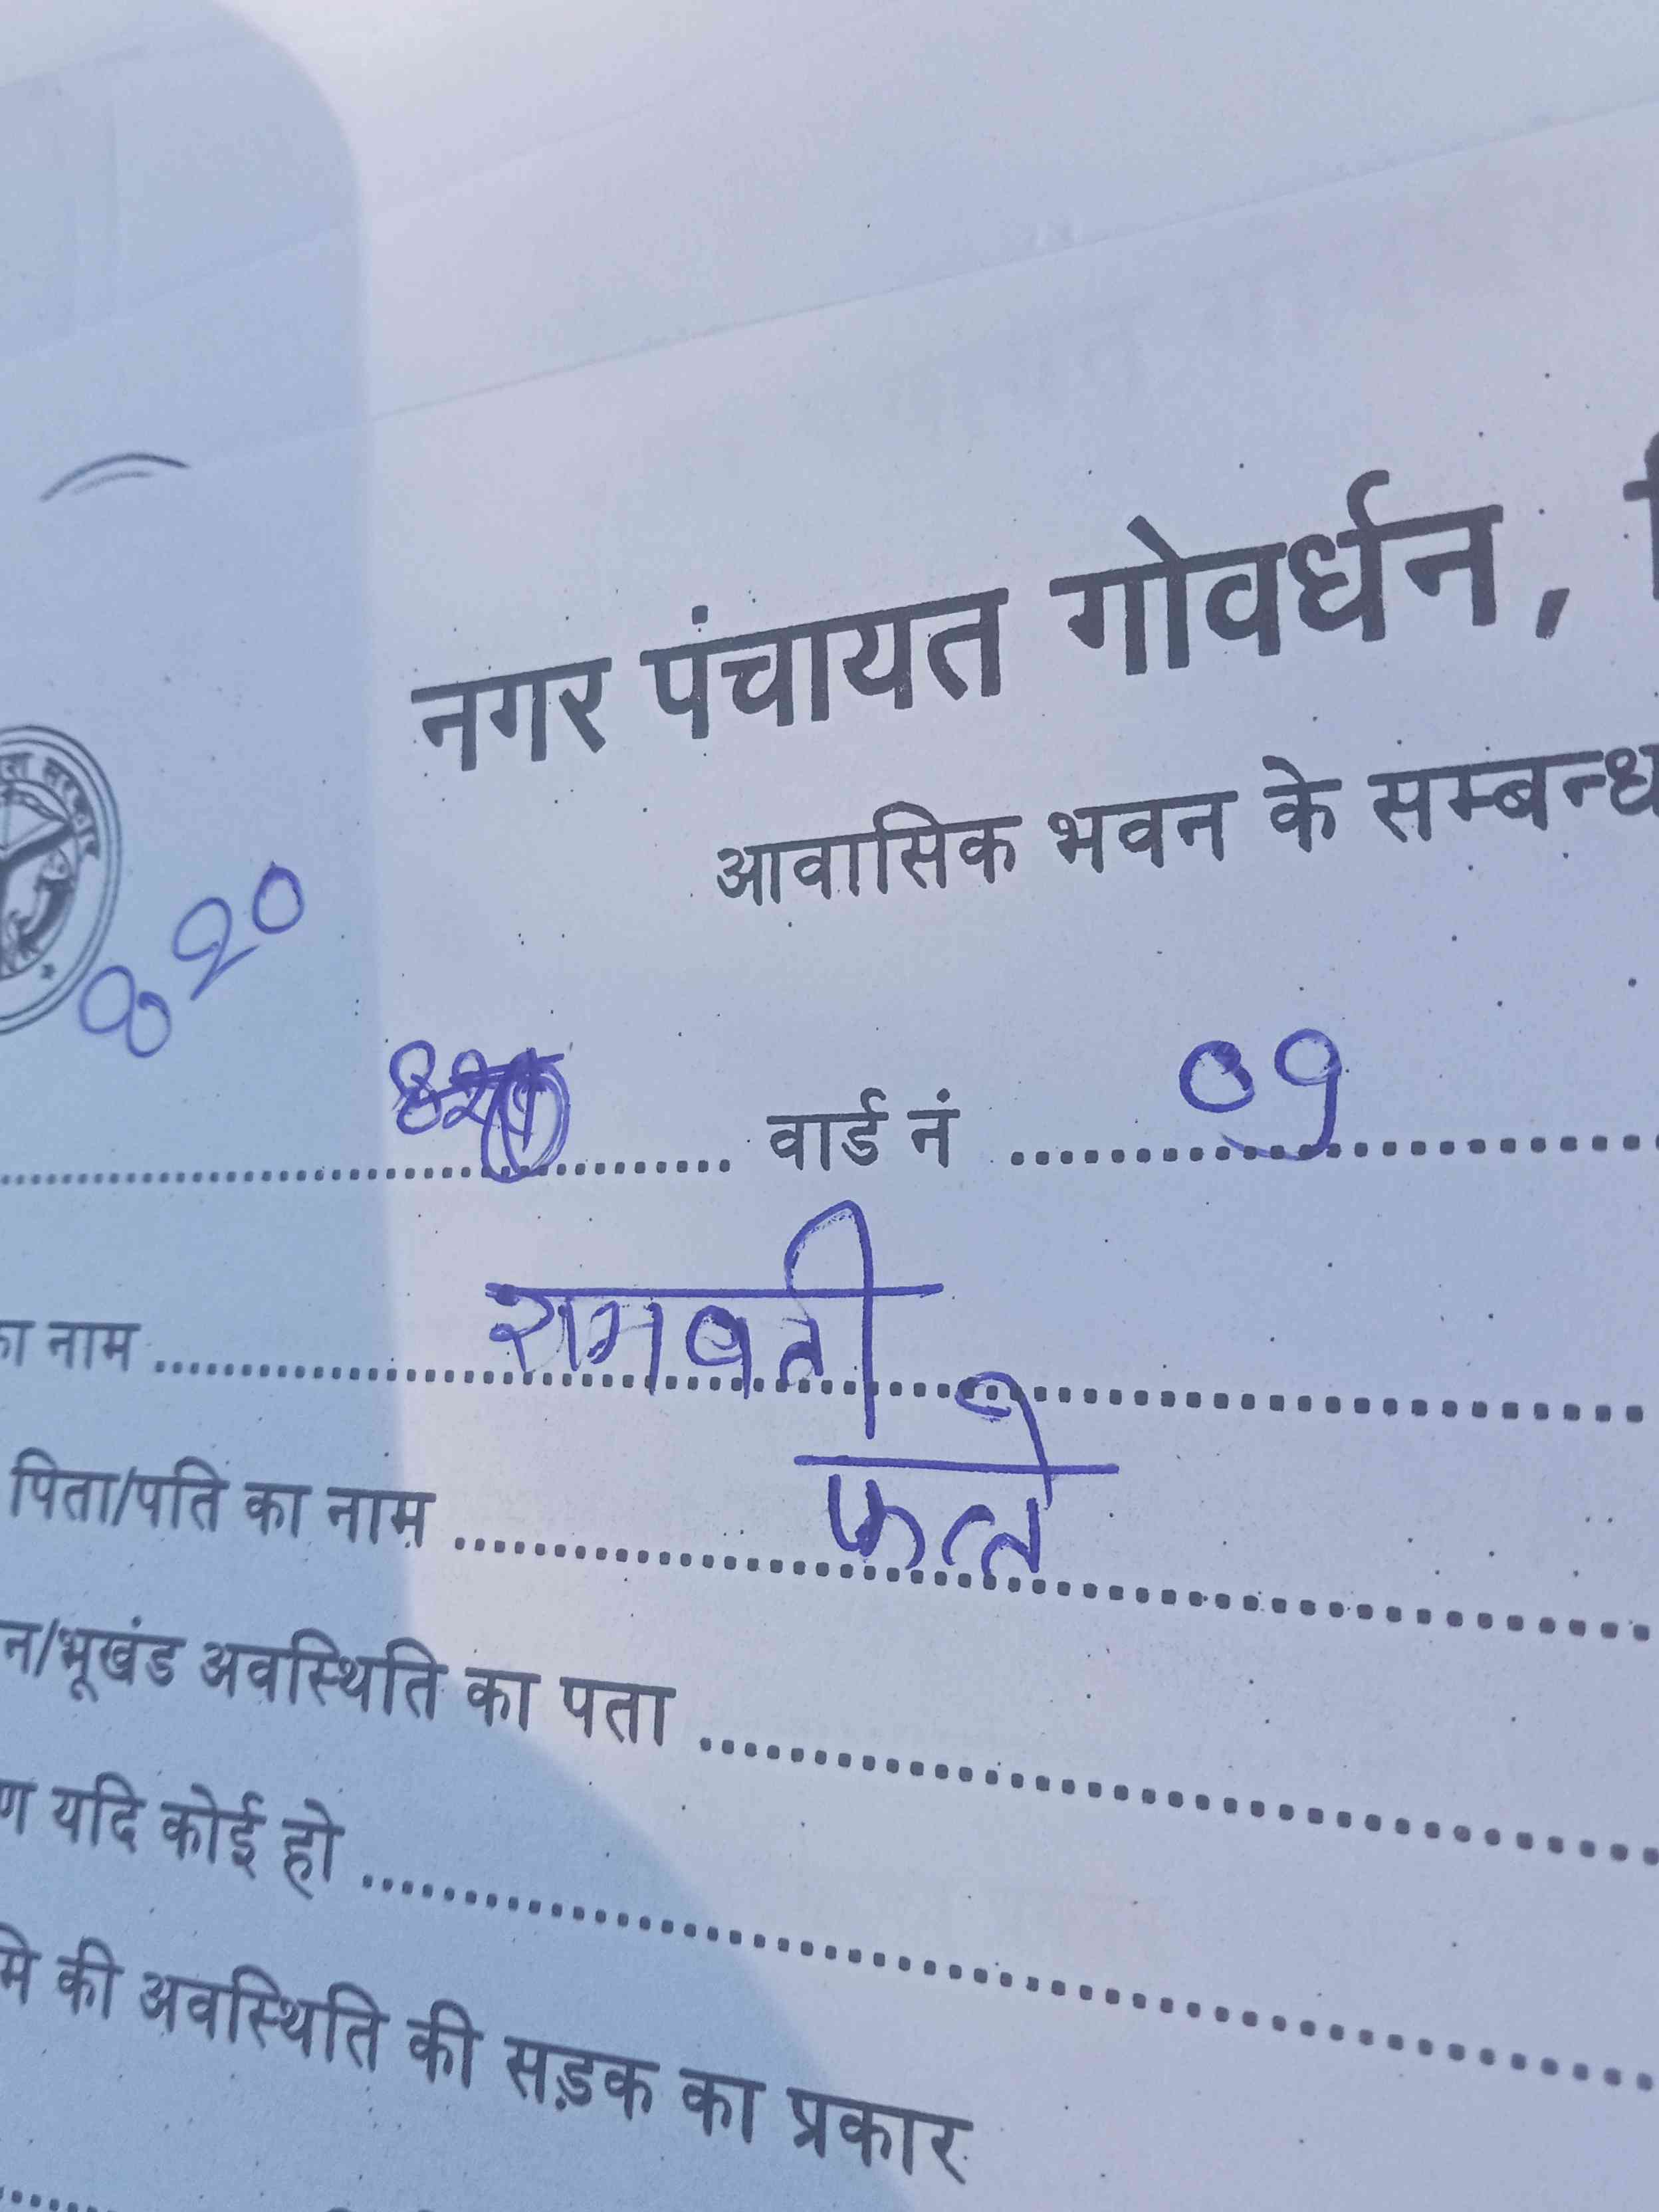 नगर पंचायत गोवर्धन,
आवासिक भवन के सम्बन्ध
सरकार
820
वार्ड नं 09
का नाम रामवती
पिता/पति का नाम फत्ते
न/भूखंड अवस्थिति का पता
ण यदि कोई हो
मि की अवस्थिति की सड़क का प्रकार